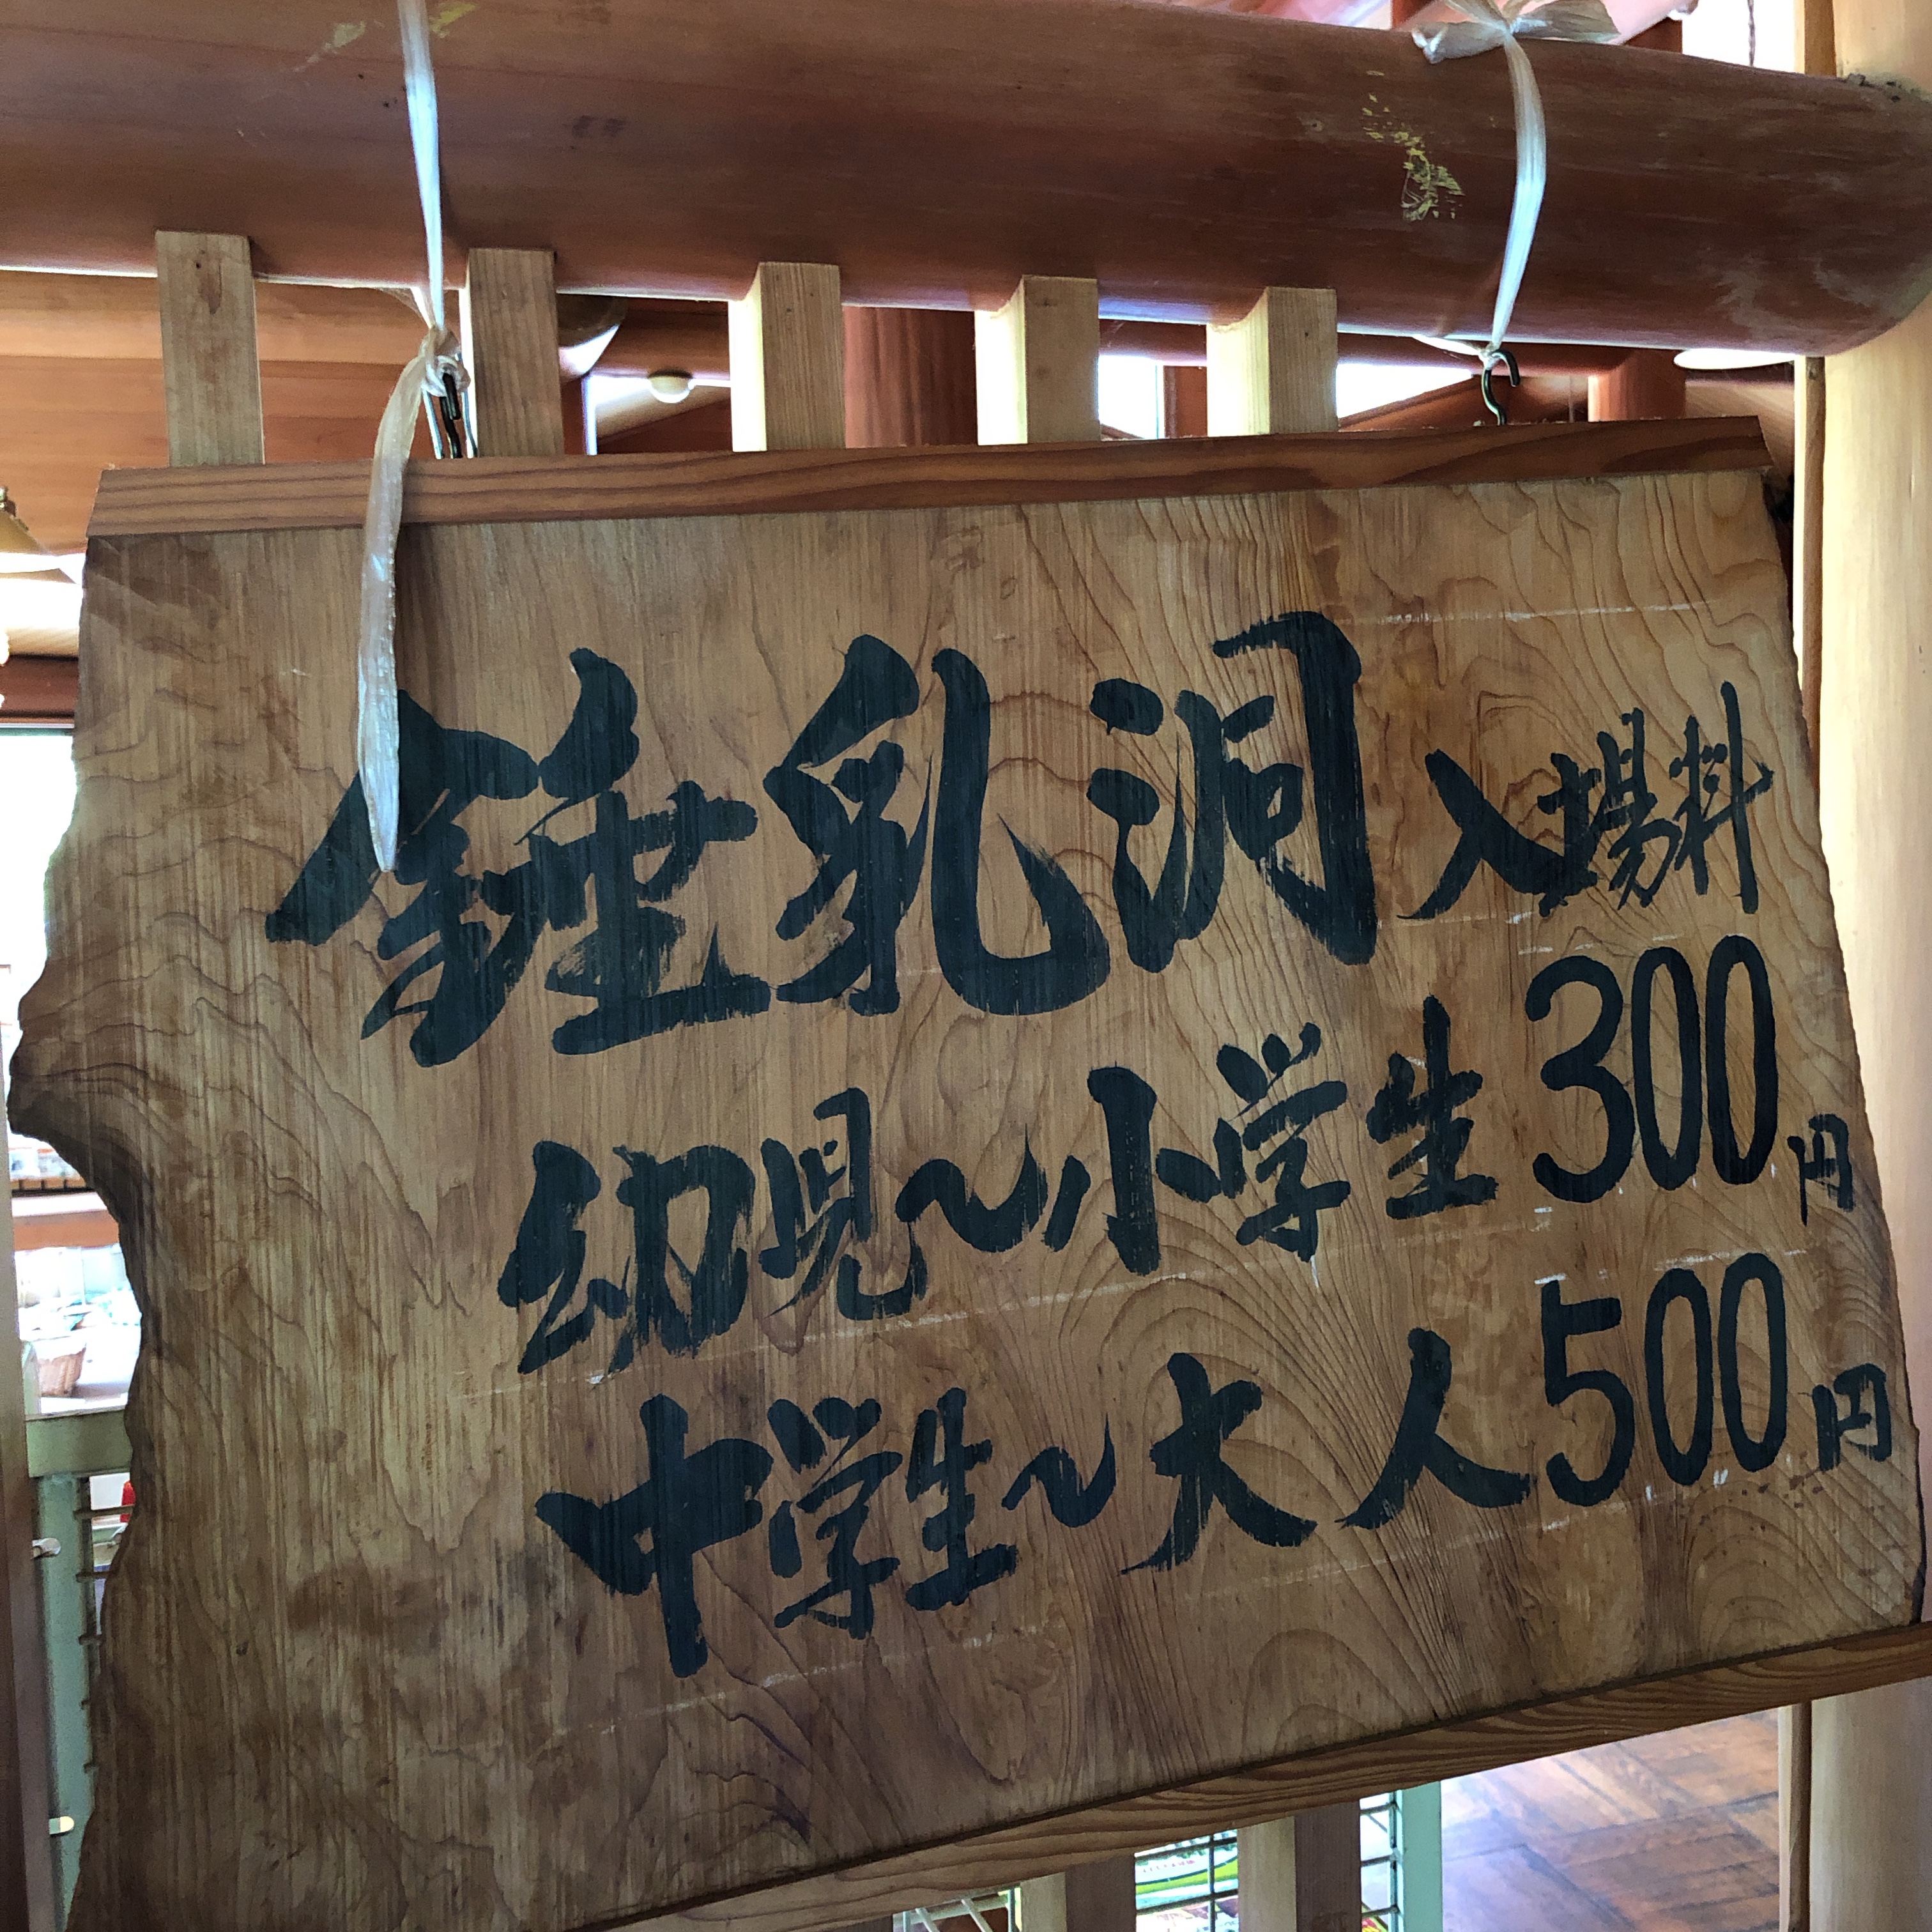 鍾乳洞入場料
幼児～小学生300円
中学生～大人500円